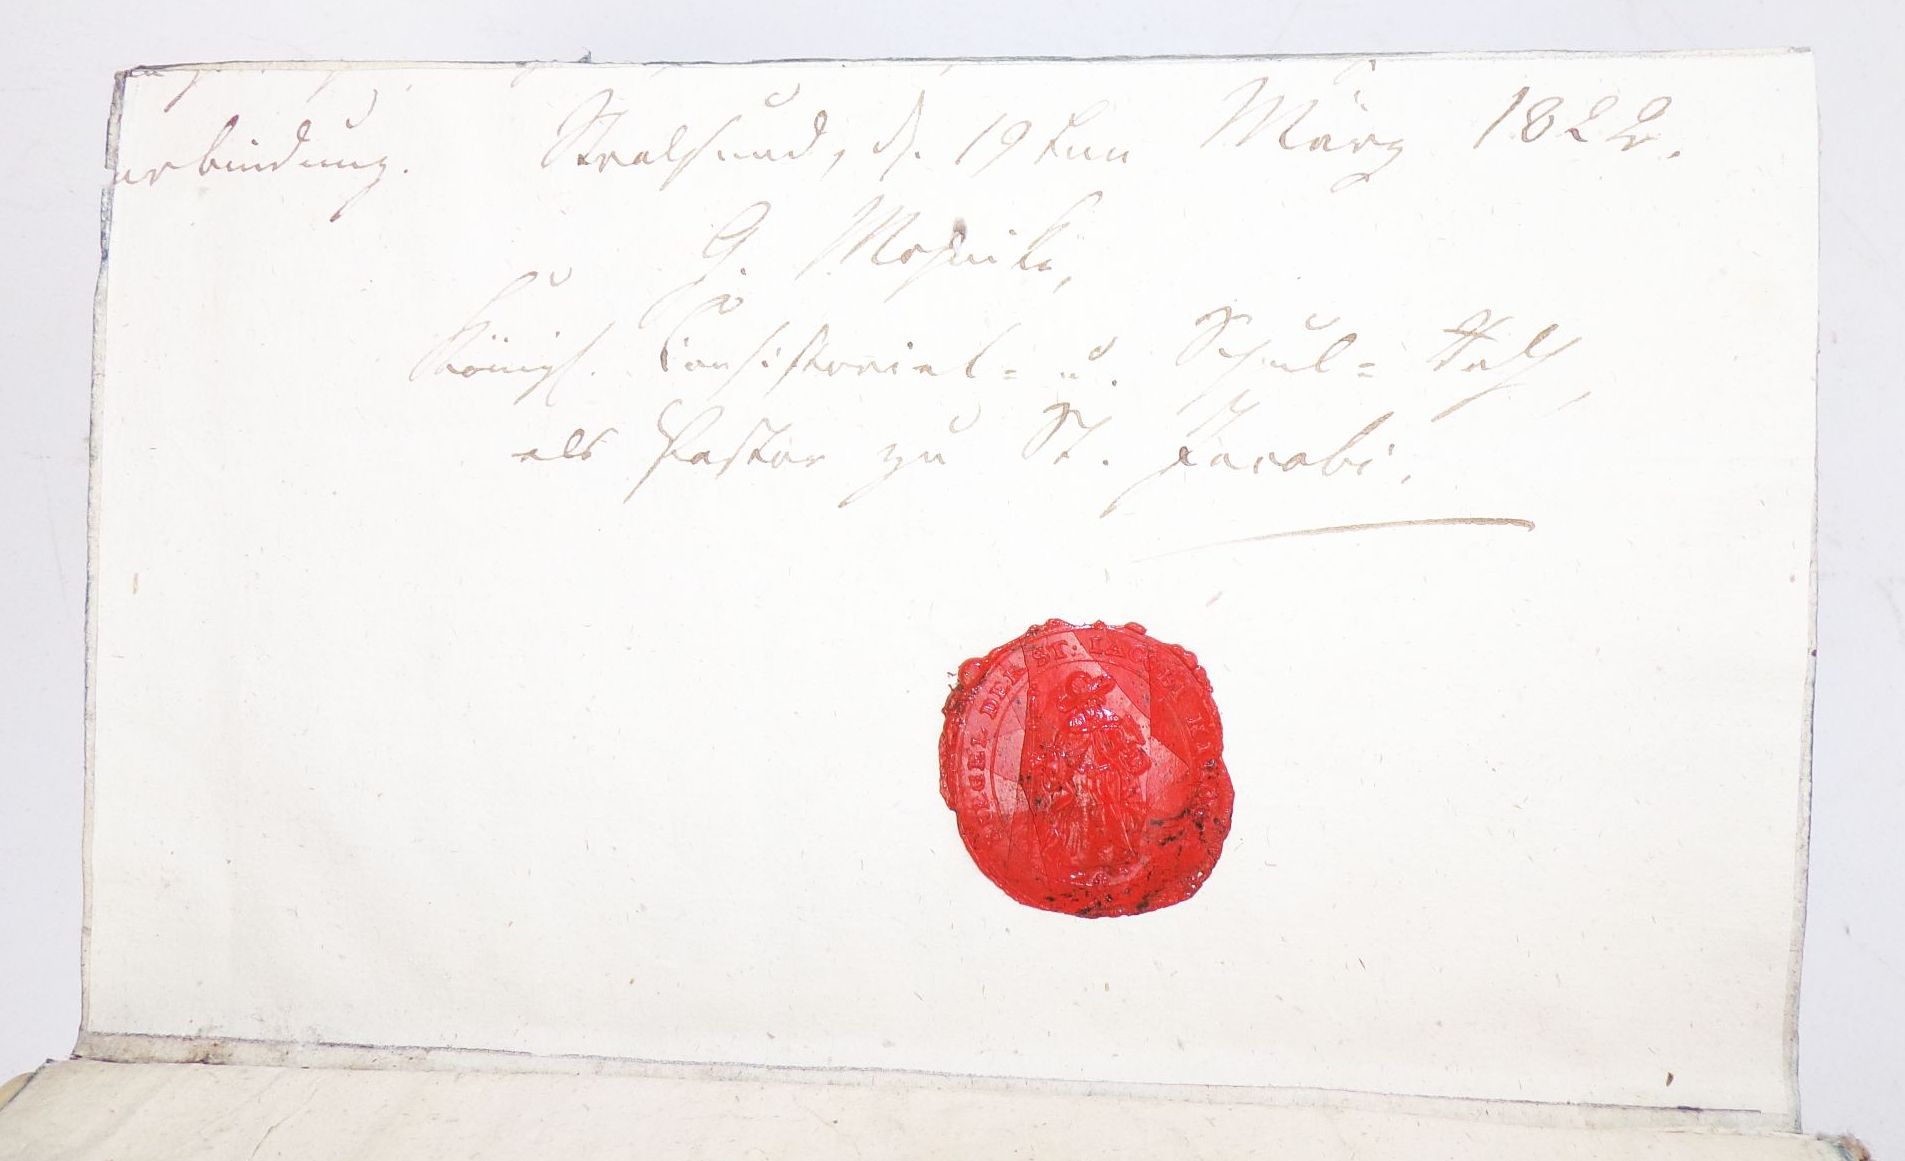 erbindung. Stralsund, d. 19ten März 1822.
G. Mohnike,
Königl. Consistorial- u. Schul-Rath,
als Pastor zu St. Jacobi.
SIEGEL DER ST. IACOBI KIRCHE